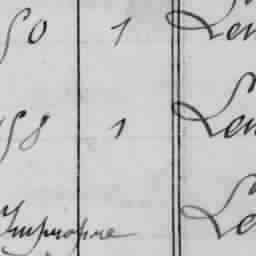 50 1 Len
158 1 Len
Impropre Le